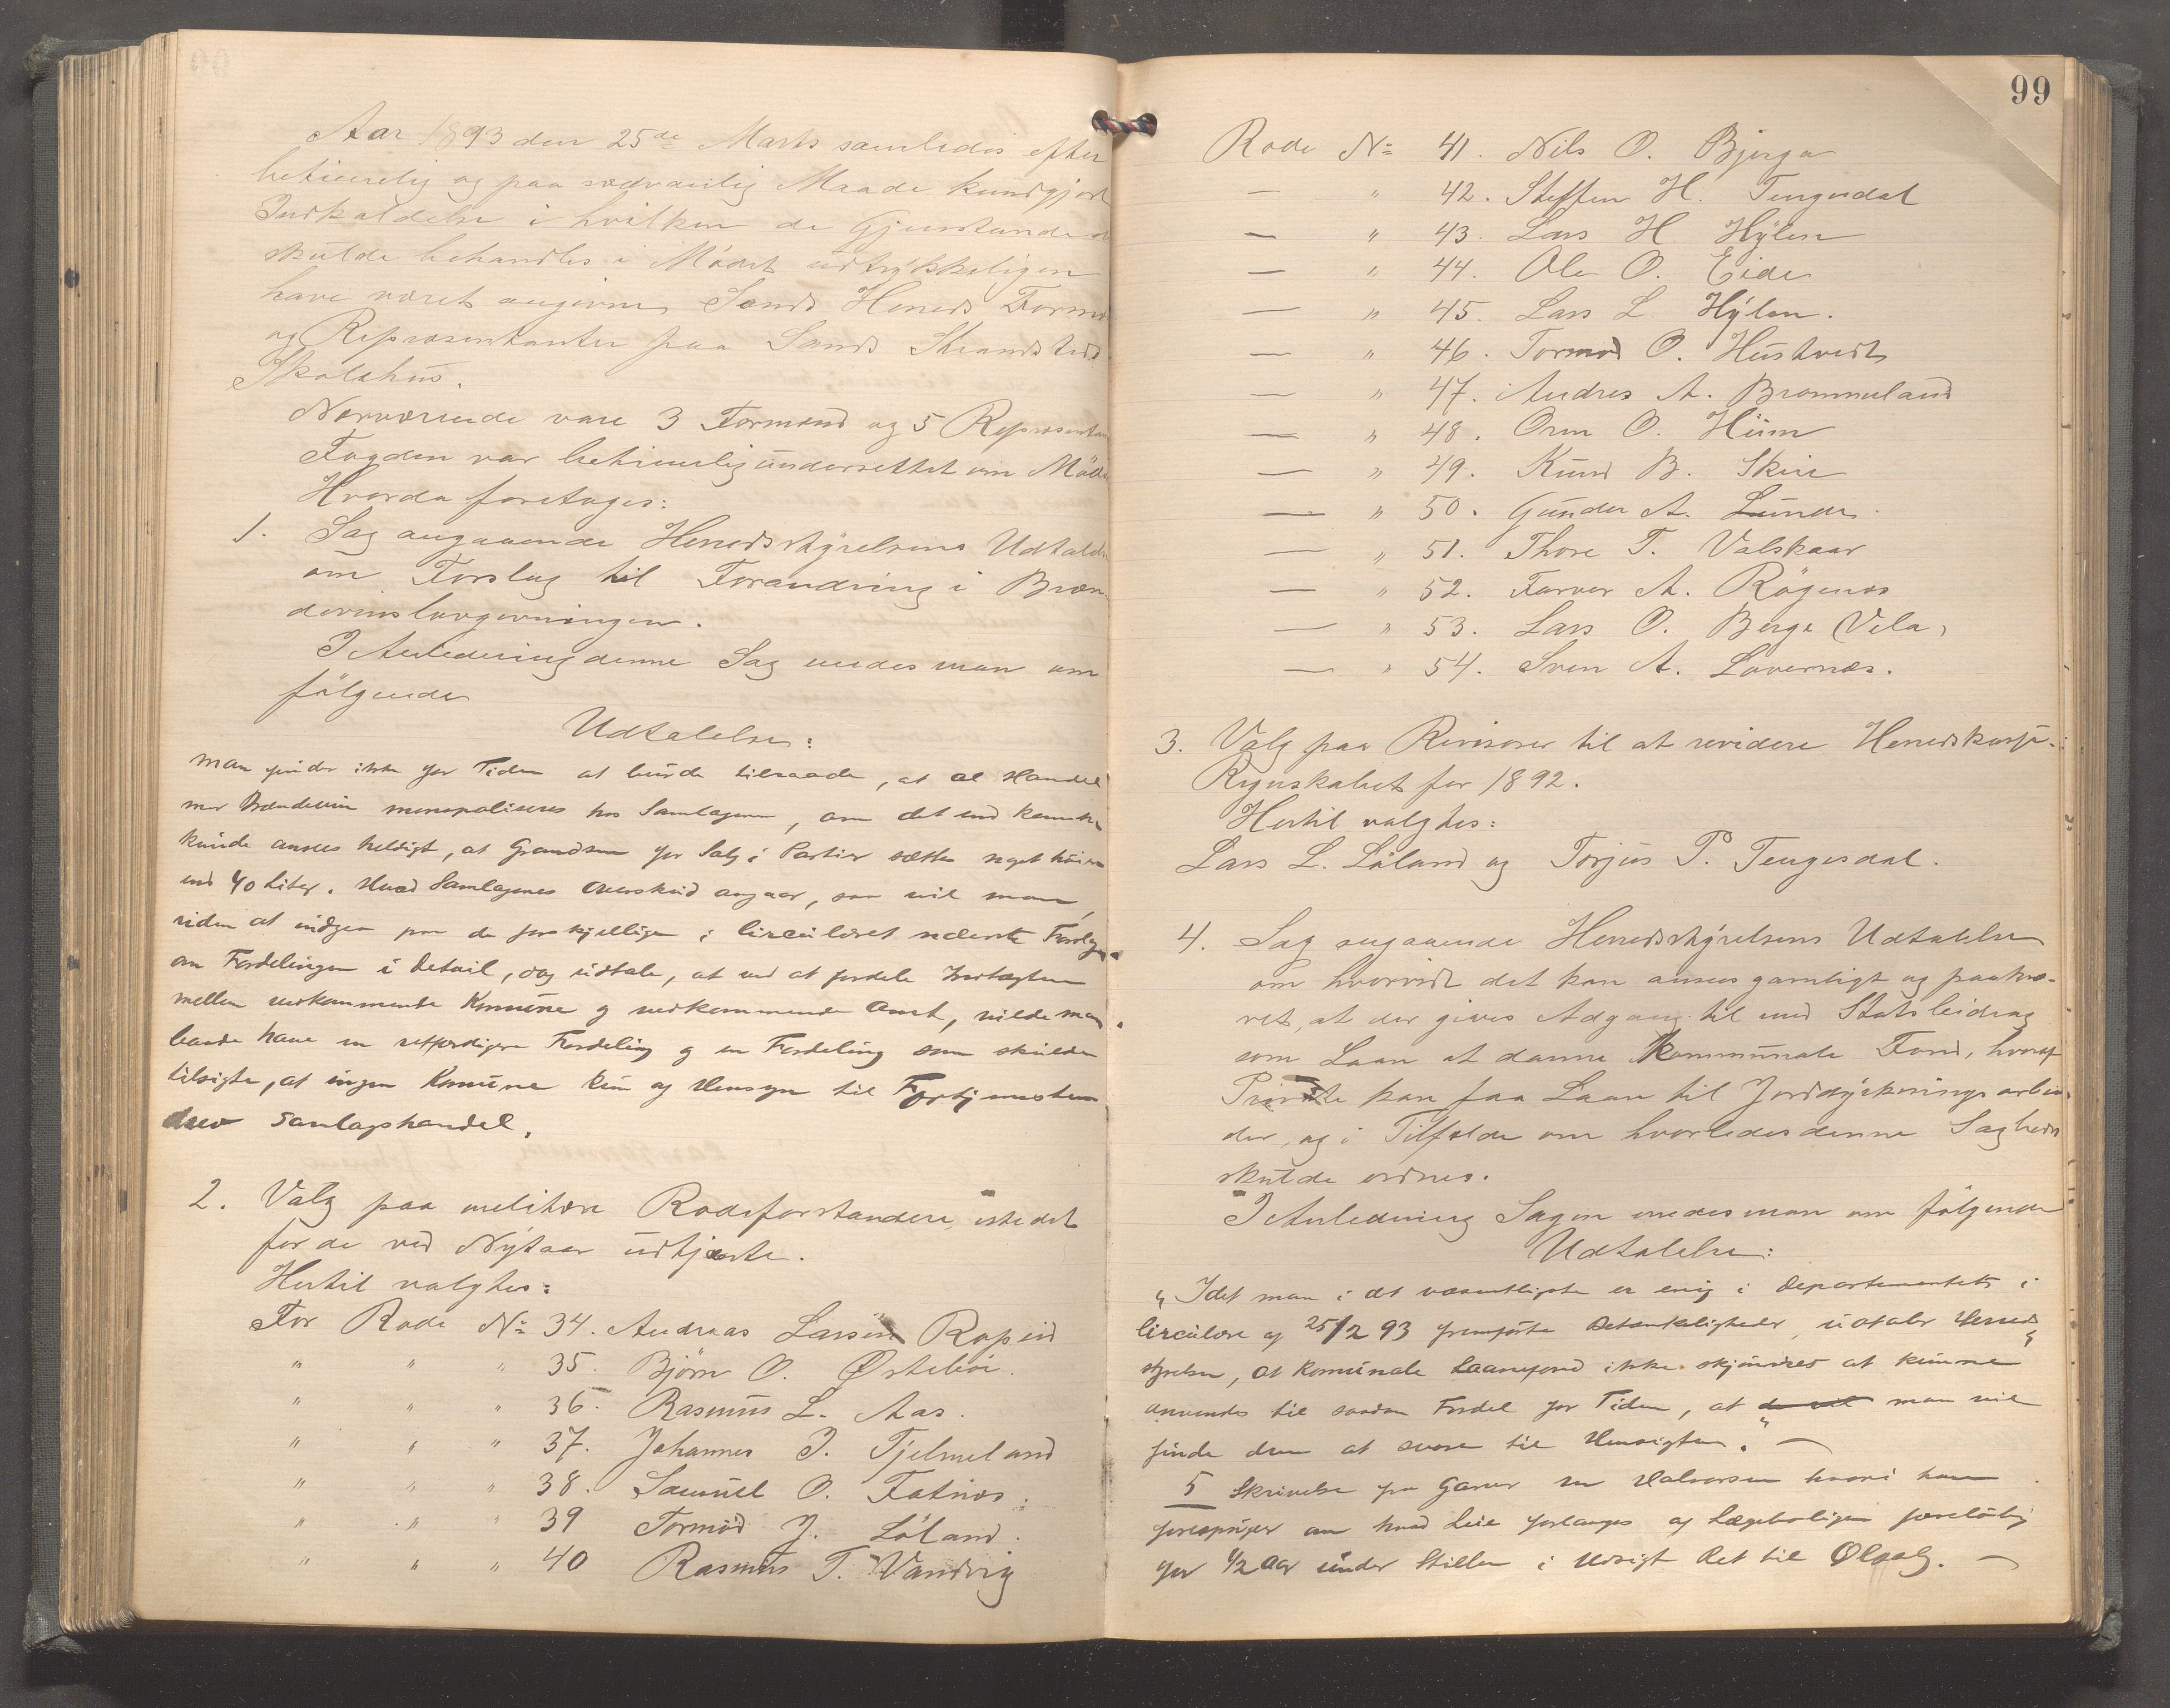 Aar 1893 den 25de Marts samledes efter
betimelig og paa sædvanlig Maade kundgjort
Indkaldelse i hvilken de Gjenstande
skulde behandles i Mödet udtrykkeligen
have været angivne Sands Herreds Formd
og Repræsentanter paa Sands Strandsteds
Skolehus.
Nærværende vare 3 Formænd og 5 Repræsentan
Fogden var betimelig underrettet om Möde
Hvorda foretages:
1. Sag angaaende Herredsstyrelsens Udtalelse
om Forslag til Forandring i Bræn-
devinslovgivningen.
I Anledning denne Sag enedes man om
fölgende
Udtalelse:
Man finder ikke for Tiden at burde tilraade, at al Handel
med Brændevin monopoliseres hos Samlagene, om det end kanske
kunde ansees heldigt, at Grændsen for Salg i Partier sættes noget höiere
end 40 Liter. Hvad Samlagenes Overskud angaar, saa vil man,
uden at indgaa paa de forskjellige i Circulæret nævnte Forslag
om Fordelingen i Detail, dog udtale, at ved at fordele Indtægten
mellem vedkommende Komune og vedkommende Amt, vilde man
baade have en retfærdigere Fordeling og en Fordeling som skulde
tilsigte, at ingen Komune kun af Hensyn til Fortjenesten
drev Samlagshandel.
2. Valg paa melitære Rodeforstandere istedet
for de ved Nytaar udtjente.
Hertil valgtes:
For Rode No 34. Andreas Larsen Ropeid
" " " 35. Björn O. Østeböe.
" " " 36. Rasmus L. Aas.
" " " 37. Johannes J. Tjelmeland
" " " 38. Samuel O. Fatnes.
" " " 39 Tormod J. Löland.
" " " 40 Rasmus T. Vandvig
99
Rode No 41. Nils O. Bjerga
— " 42. Steffen H. Tengesdal
— " 43. Lars H. Hylen
— " 44. Ole O. Eide
— " 45. Lars L. Hylen.
— " 46. Tormod O. Hustvedt
— " 47. Andres A. Brommeland
— " 48. Orm O. Hiim
— " 49. Knud B. Skiie
— " 50. Gunder A. Lunde.
— " 51. Thore T. Valskaar
— " 52. Farver A. Rögenes
— " 53. Lars O. Berge (Vela)
— " 54. Sven A. Lovernæs.
3. Valg paa Revisorer til at revidere Herredskasse-
Regnskabet for 1892.
Hertil valgtes:
Lars L. Löland og Torjus P. Tengesdal.
4. Sag angaaende Herredsstyrelsens Udtalelse
om hvorvidt det kan ansees gavnligt og paakræ-
vet, at der gives Adgang til med Statsbidrag
som Laan at danne Kommunale Fond, hvoraf
Private kan faa Laan til Jorddyrkningsarbei-
der, og i Tilfælde om hvorledes denne Sag heds
skulde ordnes.
I Anledning Sagen enedes man om fölgende
Udtalelse:
"Idet man i det væsentligste er enig i Departementets i
Circulære af 25/2 93 fremförte Betænkeligheder, udtaler Herreds
styrelsen, at Komunale Laanefond ikke skjönnes at kunne
anvendes til saadan Fordel for Tiden, at de vil man vil
finde dem at svare til Hensigten." —
5 Skrivelse fra Garver Halvorsen hvori han
forespörger om hvad Leie forlanges af Lægeboligen foreløbig
for 1/2 Aar under Stillen i Udsigt Ret til Ølsalg. —